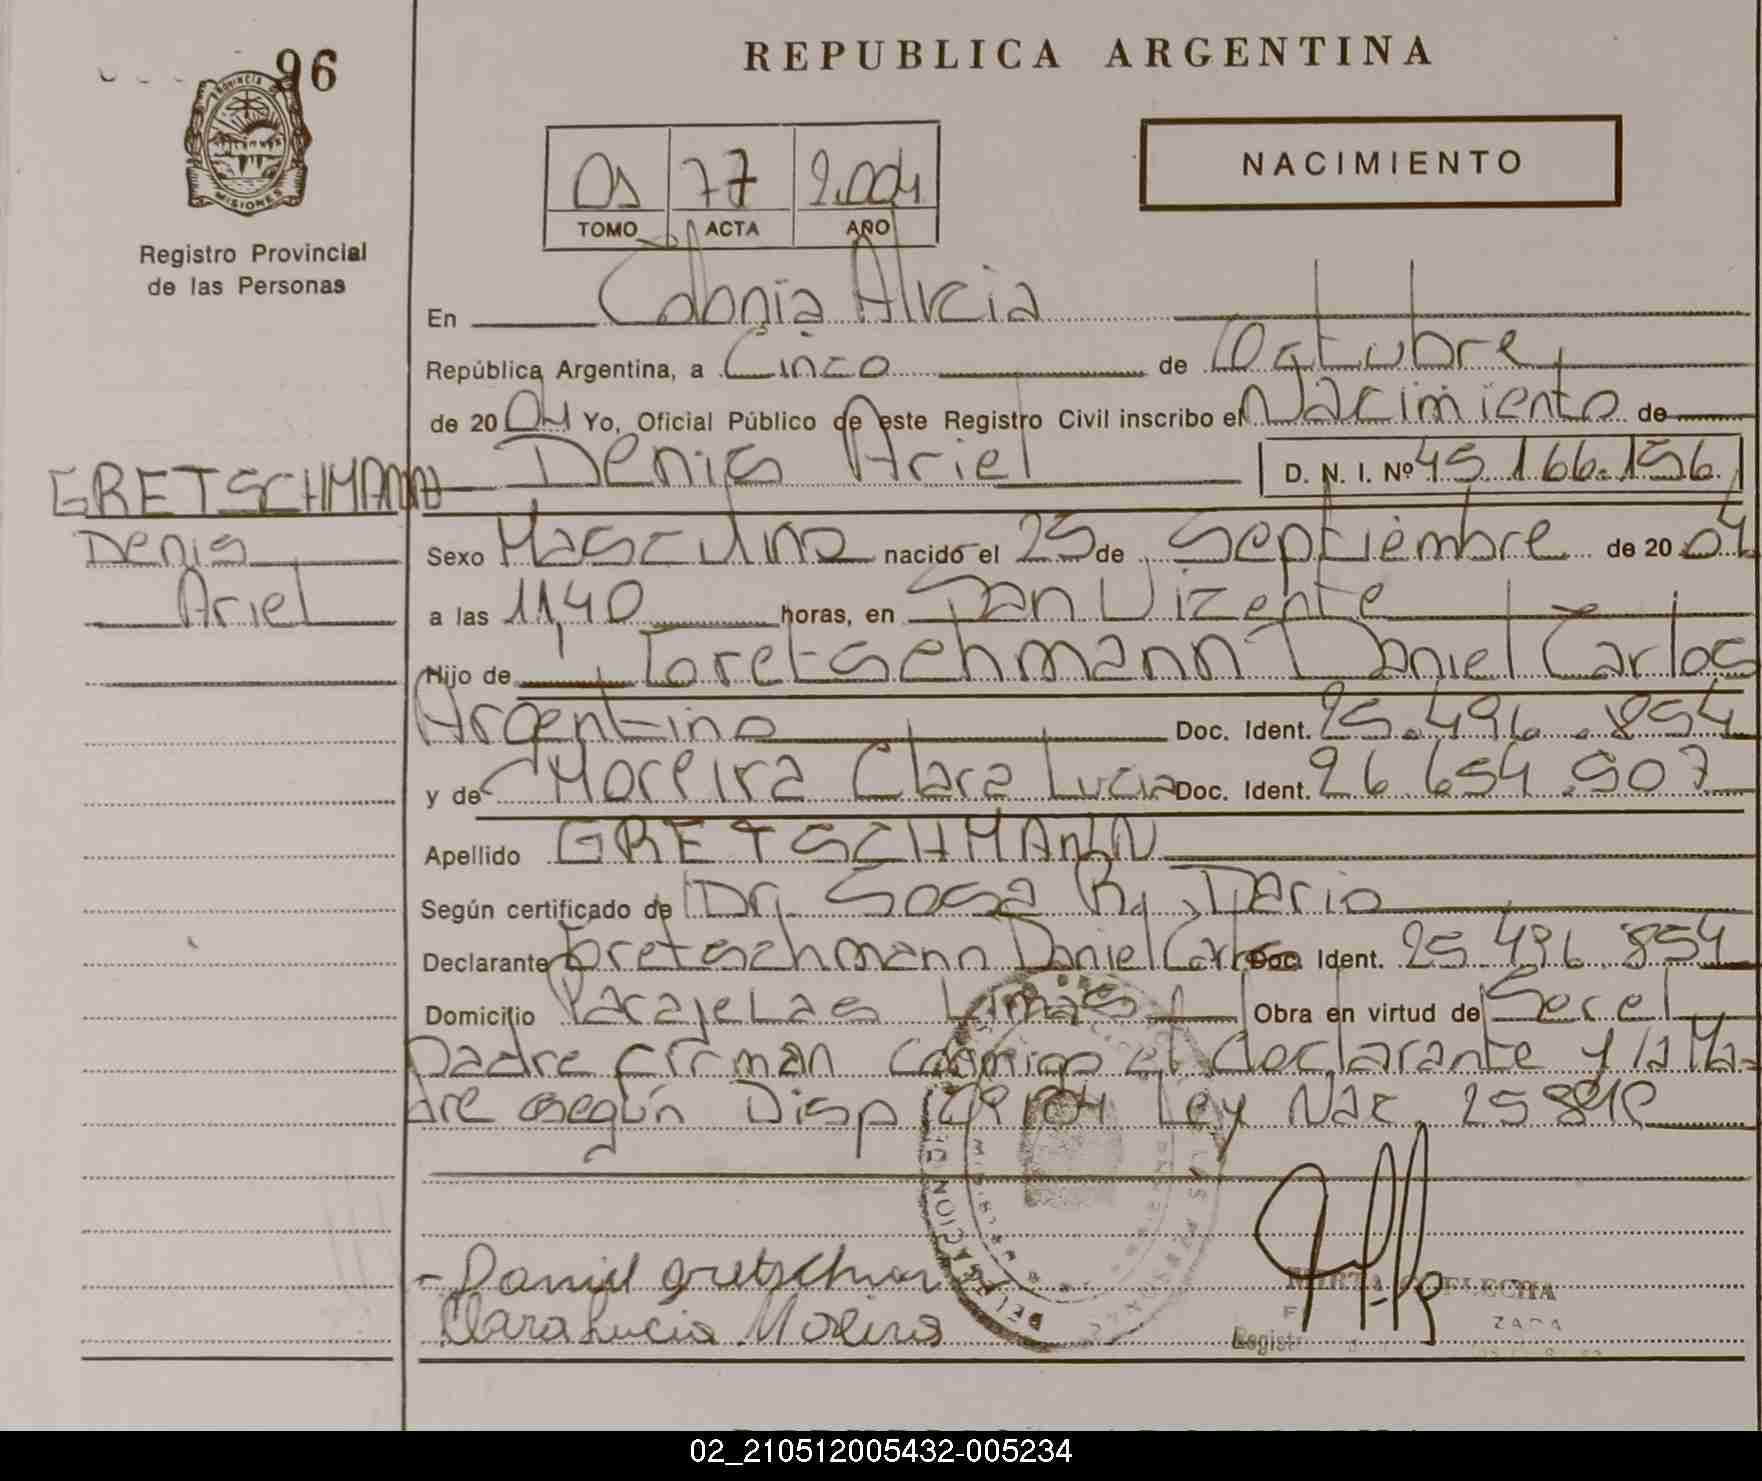 96
REPUBLICA ARGENTINA
PROVINCIA DE
MISIONES
Registro Provincial
de las Personas
01 77 2.004
TOMO ACTA AÑO
NACIMIENTO
En Colonia Alicia
República Argentina, a Cinco de Octubre
de 20 04 Yo, Oficial Público de este Registro Civil inscribo el Nacimiento de
GRETSCHMANN
Denis
Ariel
Denis Ariel D. N. I. Nº 45.166.156.
Sexo Masculino nacido el 25 de Septiembre de 20 04
a las 11,40 horas, en San Vizente
Hijo de Gretschmann Daniel Carlos
Argentino Doc. Ident. 25.496.854
y de Moreira Clara Lucia Doc. Ident. 26.654.907
Apellido GRETSCHMANN
Según certificado de Dr. Sosa R. Dario
Declarante Gretschmann Daniel Carlos Doc. Ident. 25.496.854
Domicilio Paraje Las Limas Obra en virtud de Ser el
Padre firman conmigo el declarante y la Ma-
dre según Disp Ley Nac.
Daniel Gretschman
Clara Lucia Moreira
MIRTA
02_210512005432-005234